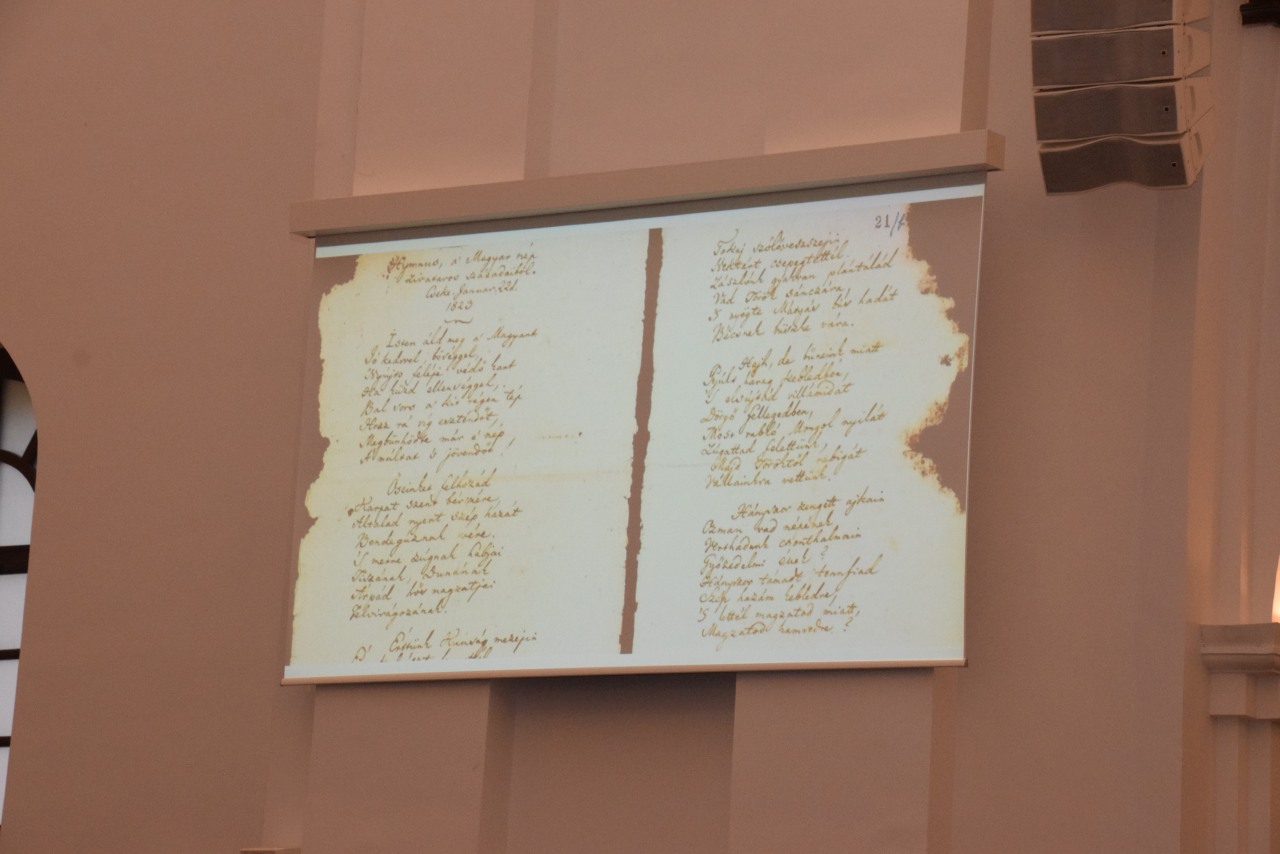 Hymnus, a' Magyar nép
zivataros századaiból.
Cseke, Januar. 22d.
1823
Isten áld meg a' Magyart
Jó kedvvel, bőséggel,
Nyújts feléje védő kart
Ha küzd ellenséggel,
Bal sors a' kit régen tép
Hozz rá víg esztendőt,
Megbünhödte már e' nép
A' multat 's jövendőt.
Őseinket felhozád
Kárpát szent bérczére,
Általad nyert szép hazát
Bendegúznak vére.
'S merre zúgnak habjai
Tiszának, Dunának
Árpád hős magzatjai
Felvirágozának.
Értünk Kunság mezején
21/
Tokaj szőlővesszein
Nektárt csepegtettél.
Zászlónk gyakran plántálád
Vad Török sánczára,
'S nyögte Mátyás bús hadát
Bécsnek büszke vára.
Hajh, de bűneink miatt
Gyúlt harag kebledben,
'S elsújtád villámidat
Dörgő fellegedben,
Most rabló Mongol nyilát
Zúgattad felettünk,
Majd Töröktől rabigát
Vállainkra vettünk.
Hányszor zengett ajkain
Ozman vad népének
Vert hadunk csonthalmain
Győzedelmi ének?
Hányszor támadt tennfiad
Szép hazám kebledre,
'S lettél magzatod miatt,
Magzatod hamvvedre?